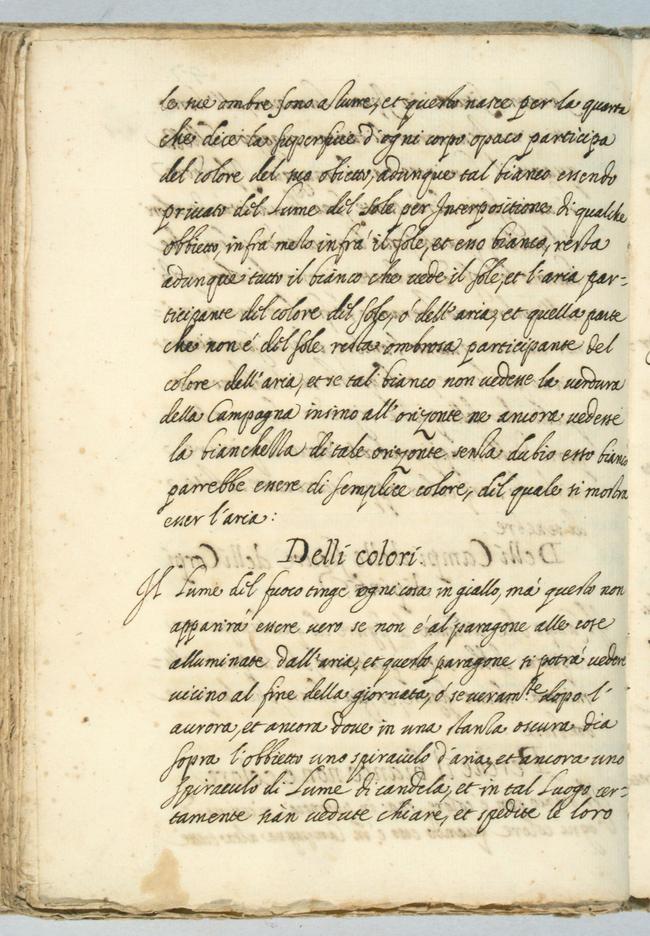 le sue ombre sono a lume, et questo nasce per la quarta
che dice la superficie d'ogni corpo opaco participa
del colore del suo obietto, adunque tal bianco essendo
privato dil Lume dil Sole per Interpositione di qualche
obbietto, infrá messo infrá il sole, et esso bianco, resta
adunque tutto il bianco che vede il sole, et l'aria par-
ticipante dil colore dil sole, ó dell'aria, et quella parte
che non é dil sole resta ombrosa participante del
colore dell'aria, et se tal bianco non vedesse la verdura
della Campagna insino all'orizonte ne ancora vedesse
la bianchezza di tale orizonte senza dubio esso bianco
parrebbe essere di semplice colore, dil quale si mostra
esser l'aria:
Delli colori
Il Lume dil fuoco tinge ogni cosa in giallo, má questo non
apparirá essere vero se non é al paragone alle cose
alluminate dall'aria, et questo paragone si potrá vedere
vicino al fine della giornata, ó se veram.te dopo l'
aurora, et ancora dove in una stanza oscura dia
sopra l'obbietto uno spiraculo d'aria, et ancora uno
spiraculo di Lume di candela, et in tal Luogo, cer-
tamente sian vedute chiare, et spedite le loro